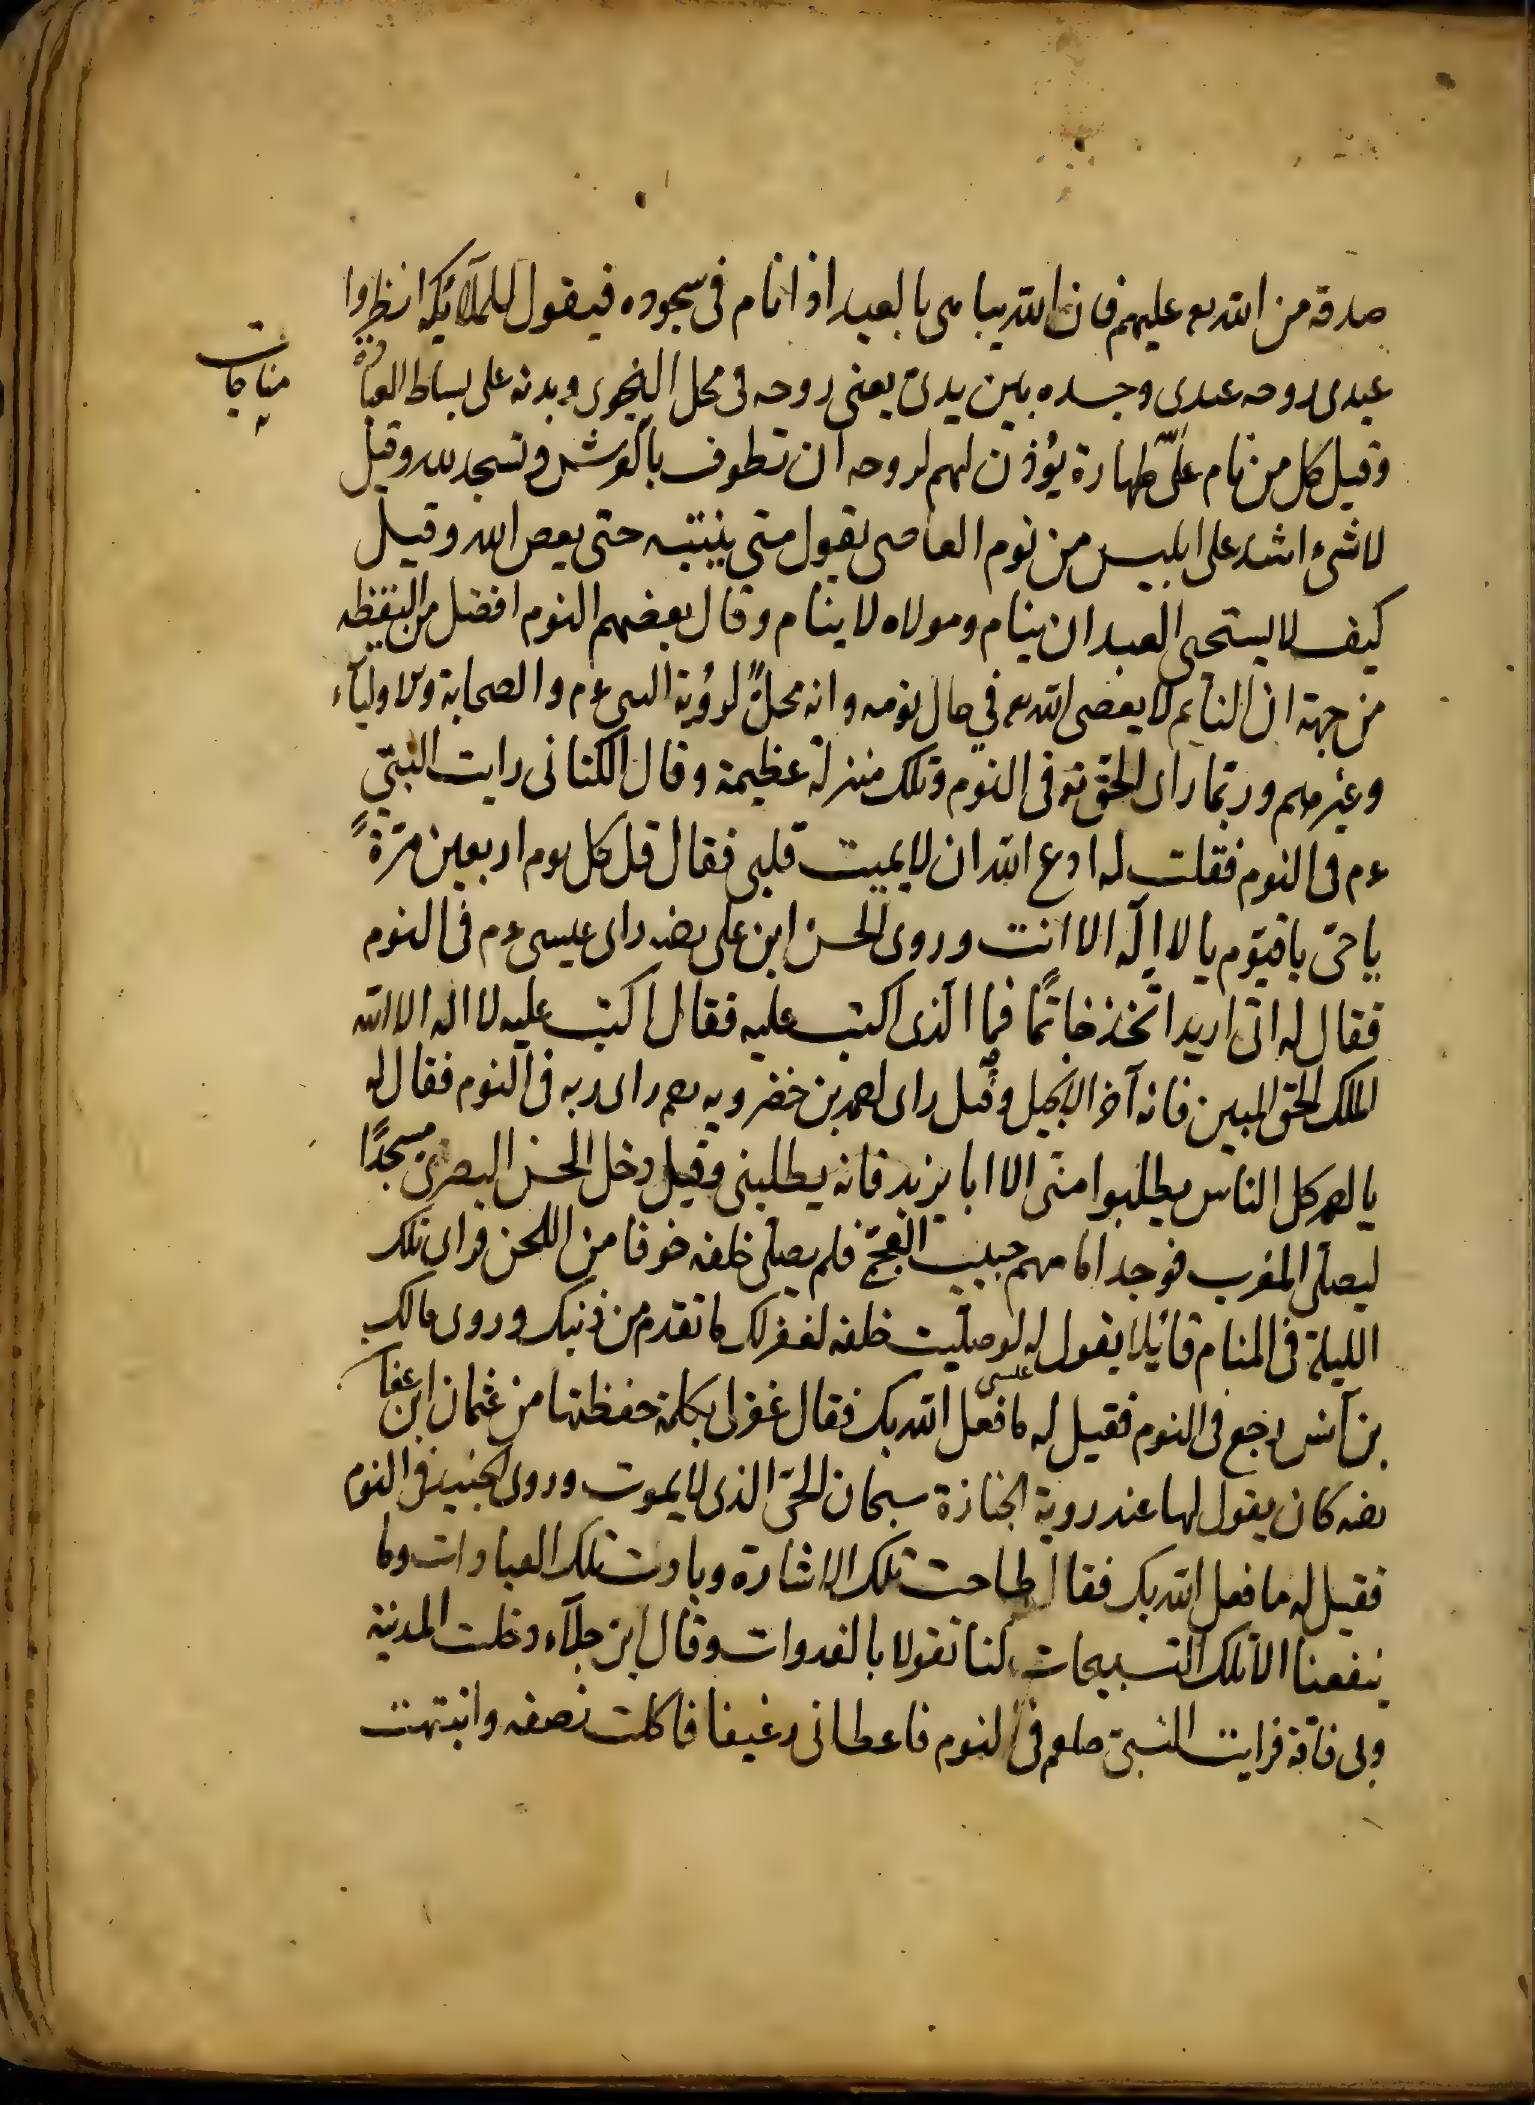 صدقة من الله تع عليهم فان الله يباهى بالعبد اذا نام فى سجوده فيقول للملآئكة انظروا
عبدى روحه عندى وجسده بين يدى يعنى روحه فى محل النجوى وبدنه على بساط العبادة
مناجات
وقيل كل من نام على طهارة يؤذن لهم لروحه ان تطوف بالعرش وتسجد لله وقيل
لا شىء اشد على ابليس من نوم العاصى يقول متى ينتبه حتى يعص الله وقيل
كيف لا يستحى العبد ان ينام ومولاه لا ينام وقال بعضهم النوم افضل من اليقظه
من جهة ان النايم لا يعصى الله تع فى حال نومه وانه محل لرؤية النبى ءم والصحابة والاوليآء
وغيرهم وربما راى الحق تع فى النوم وتلك منزلة عظيمة وقال الكتانى رايت النبى
ءم فى النوم فقلت له ادع الله ان لا يميت قلبى فقال قل كل يوم اربعين مرّةً
ياحى ياقيوم يا لا اله الا انت وروى الحسن ابن على رضه راى عيسى ءم فى النوم
فقال له انى اريد اتخذ خاتمًا فما الذى اكتب عليه فقال اكتب عليه لا اله الا الله
الملك الحق المبين فانه آخر الانجيل وقيل راى احمد بن خضرويه رحم راى ربه فى النوم فقال له
يا احمد كل الناس يطلبوا منى الا ابا يزيد فانه يطلبنى وقيل دخل الحسن البصرى مسجدًا
ليصلى المغرب فوجد امامهم حبيب العجمى فلم يصلى خلفه خوفا من اللحن فراى تلك
الليلة فى المنام قائيلا يقول له لو صليت خلفه لغفر لك ما تقدم من ذنبك وروى مالك
بن آنس رجع فى النوم فقيل له ما فعل الله بك فقال غفر لى بكلمة حفظتها من عثمان ابن عفان
رضه كان يقول لها عند روية الجنازة سبحان الحى الذى لا يموت وروى الجنيد فى النوم
فقيل له ما فعل الله بك فقال طاحت تلك الاشارة وبادت تلك العبارات وما
ينفعنا الا تلك التسبيحات كنا نقولا بالغدوات وقال ابن جلآء دخلت المدينة
وبى فاقة فرايت النبى صلعم فى النوم فاعطانى رغيفا فاكلت نصفه وانبتهت